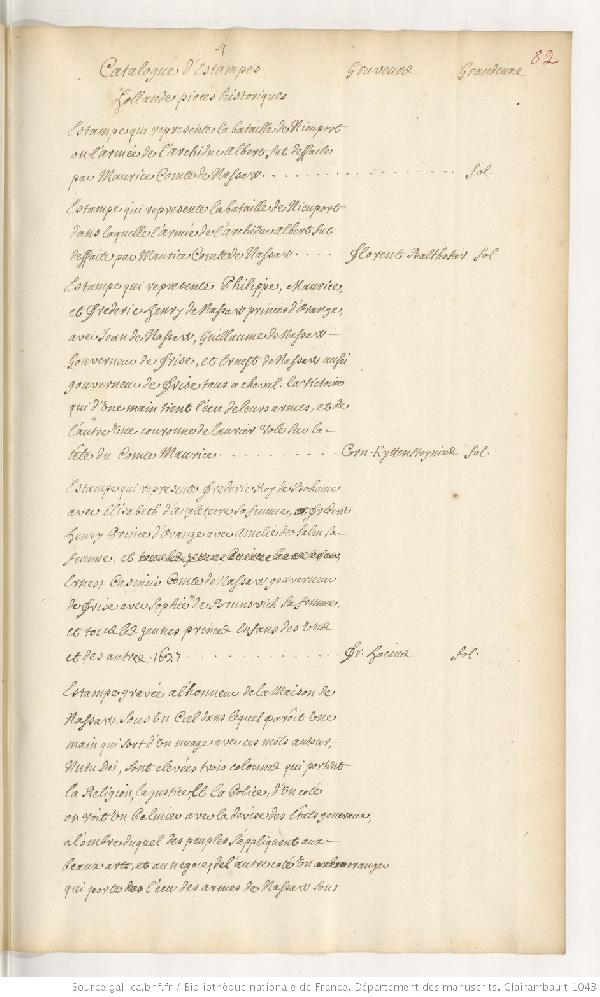 4
82
Catalogue d'Estampes Graveurs Grandeurs
Hollande pieces historiques
Estampe qui represente la bataille de Nieuport
ou l'armée de l'archiduc Albert fut deffaite
par Maurice Comte de Nassaw. fol.
Estampe qui represente la bataille de Nieuport
dans laquelle l'armée de l'archiduc Albert fut
deffaite par Maurice Comte de Nassaw Florent Balthasar fol
Estampe qui represente Philippe, Maurice,
et Frederic Henry de Nassaw princes d'Orange,
avec Jean de Nassaw, Guillaume de Nassaw
Gouverneur de Frise, et Ernest de Nassaw aussi
gouverneur de Frise tous a cheval. la victoire
qui d'une main tient l'écu de leurs armes, et de
l'autre une couronne de laurier vole sur la
tête du Comte Maurice Corn. fol.
Estampe qui represente Frederic Roy de Boheme
avec Elisabeth d'Angleterre sa femme, Frederic
Henry Prince d'Orange avec Amelie de Solm sa
femme, et
Ernest Casimir Comte de Nassaw gouverneur
de Frise avec Sophie de Brunsvich sa femme,
et tous les jeunes princes enfans des uns
et des autres. 1627 fol.
Estampe gravée a l'honneur de la Maison de
Nassaw. sous un Ciel dans lequel paroît une
main qui sort d'un nuage avec ces mots autour,
Nutu Dei, sont elevées trois colonnes qui portent
la Religion, la justice, et la Police, d'un coté
on voit un Palmier avec la devise des Etats generaux,
a l'ombre duquel des peuples s'appliquent aux
beaux arts, et au negoce, de l'autre coté un oranger
qui porte l'écu des armes de Nassaw sous
Source gallica.bnf.fr / Bibliothèque nationale de France. Département des manuscrits. Clairambault 1043